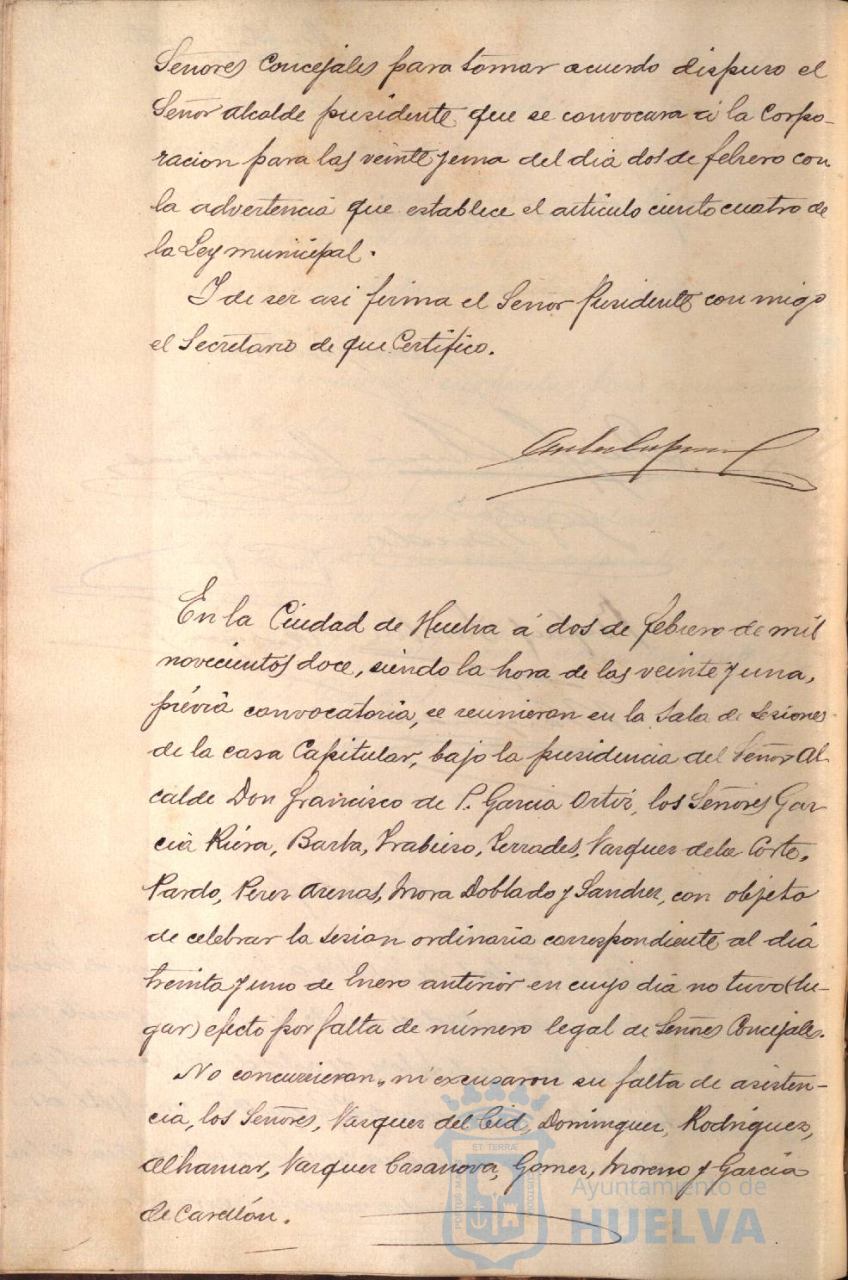 Señores Concejales para tomar acuerdo dispuso el
Señor Alcalde presidente que se convocara á la Corpo-
racion para las veinte y una del dia dos de febrero con
la advertencia que establece el artículo ciento cuatro de
la Ley municipal.
Y de ser asi firma el Señor Presidente con migo
el Secretario de que Certifico.
En la Ciudad de Huelva á dos de febrero de mil
novecientos doce, siendo la hora de las veinte y una,
prévia convocatoria, se reunieron en la Sala de Sesiones
de la casa Capitular, bajo la presidencia del Señor Al-
calde Don Francisco de P. Garcia Ortiz, los Señores Gar-
cia Riéra, Barba, Trabieso, Terrades, Vazquez de la Corte,
Pardo, Perez Arenas, Mora Doblado y Sanchez, con objeto
de celebrar la sesion ordinaria correspondiente al dia
treinta y uno de Enero anterior en cuyo dia no tuvo (lu-
gar) efecto por falta de número legal de Señores Concejales.
No concurrieron, ni excusaron su falta de asisten-
cia, los Señores, Vazquez del Cid, Dominguez, Rodriguez,
Alhamar, Vazquez Casanova, Gomez, Moreno y Garcia
de
Ayuntamiento de
HUELVA